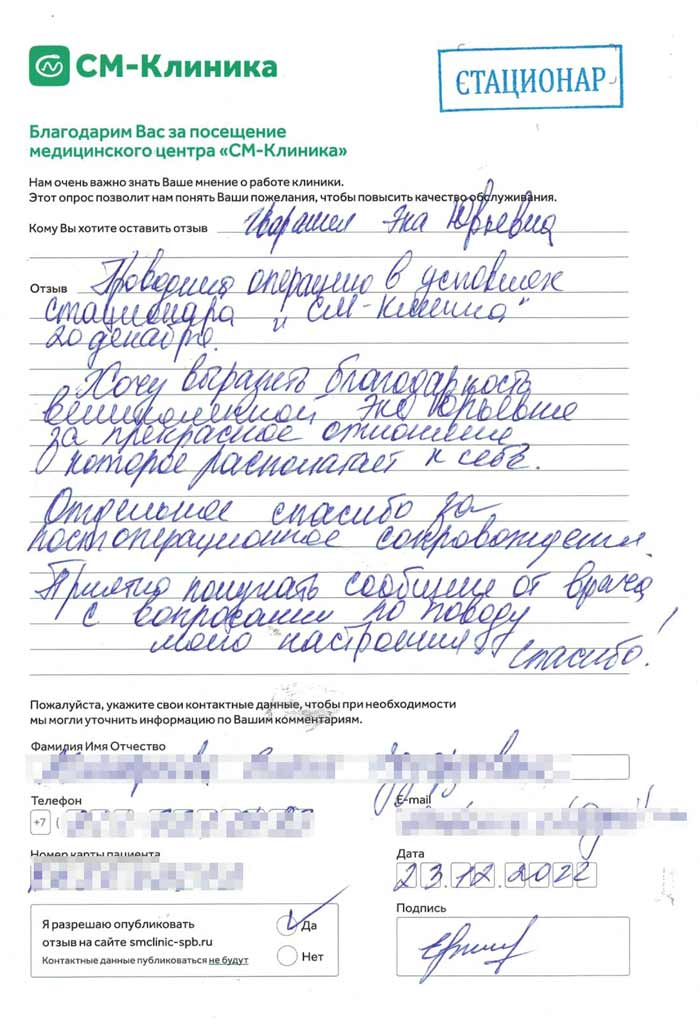 СМ-Клиника
СТАЦИОНАР
Благодарим Вас за посещение
медицинского центра «СМ-Клиника»
Нам очень важно знать Ваше мнение о работе клиники.
Этот опрос позволит нам понять Ваши пожелания, чтобы повысить качество обслуживания.
Кому Вы хотите оставить отзыв Эка Юрьевна
Отзыв Проводила операцию в условиях
стационара "СМ-клиника"
20 декабря.
Хочу выразить благодарность
великолепной Эке Юрьевне
за прекрасное отношение
которое располагает к себе.
Отдельное спасибо за
постоперационное сопровождение.
Приятно получать сообщение от врача
с вопросами по поводу
моего настроения
Спасибо!
Пожалуйста, укажите свои контактные данные, чтобы при необходимости
мы могли уточнить информацию по Вашим комментариям.
Фамилия Имя Отчество
Телефон
E-mail
+7 (
Номер карты пациента
Дата
23.12.2022
Подпись
Я разрешаю опубликовать
отзыв на сайте smclinic-spb.ru
Контактные данные публиковаться не будут
Да
Нет